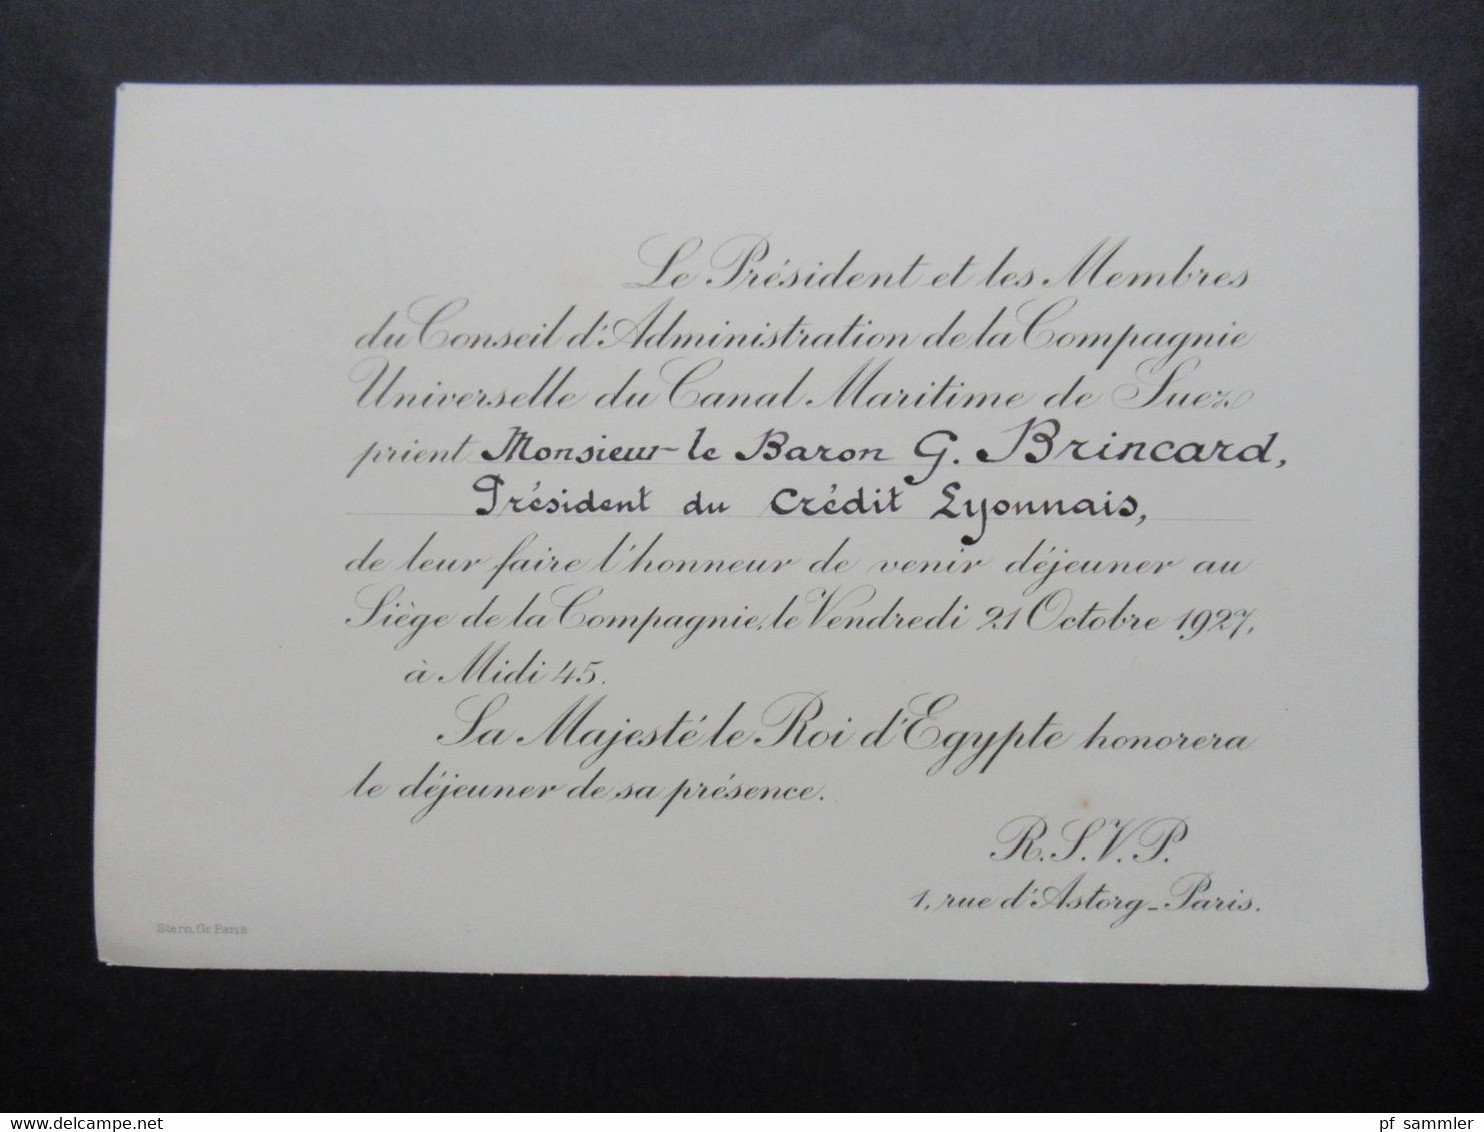 Le Président et les Membres
du Conseil d'Administration de la Compagnie
Universelle du Canal Maritime de Suez
prient Monsieur le Baron G. Brincard,
Président du Crédit Lyonnais,
de leur faire l'honneur de venir déjeuner au
Siège de la Compagnie, le Vendredi 21 Octobre 1927,
à Midi 45.
Sa Majesté le Roi d'Egypte honorera
le déjeuner de sa présence.
R.S.V.P.
1, rue d'Astorg - Paris.
Stern, Gr. Paris
www.delcampe.net
pf_sammler